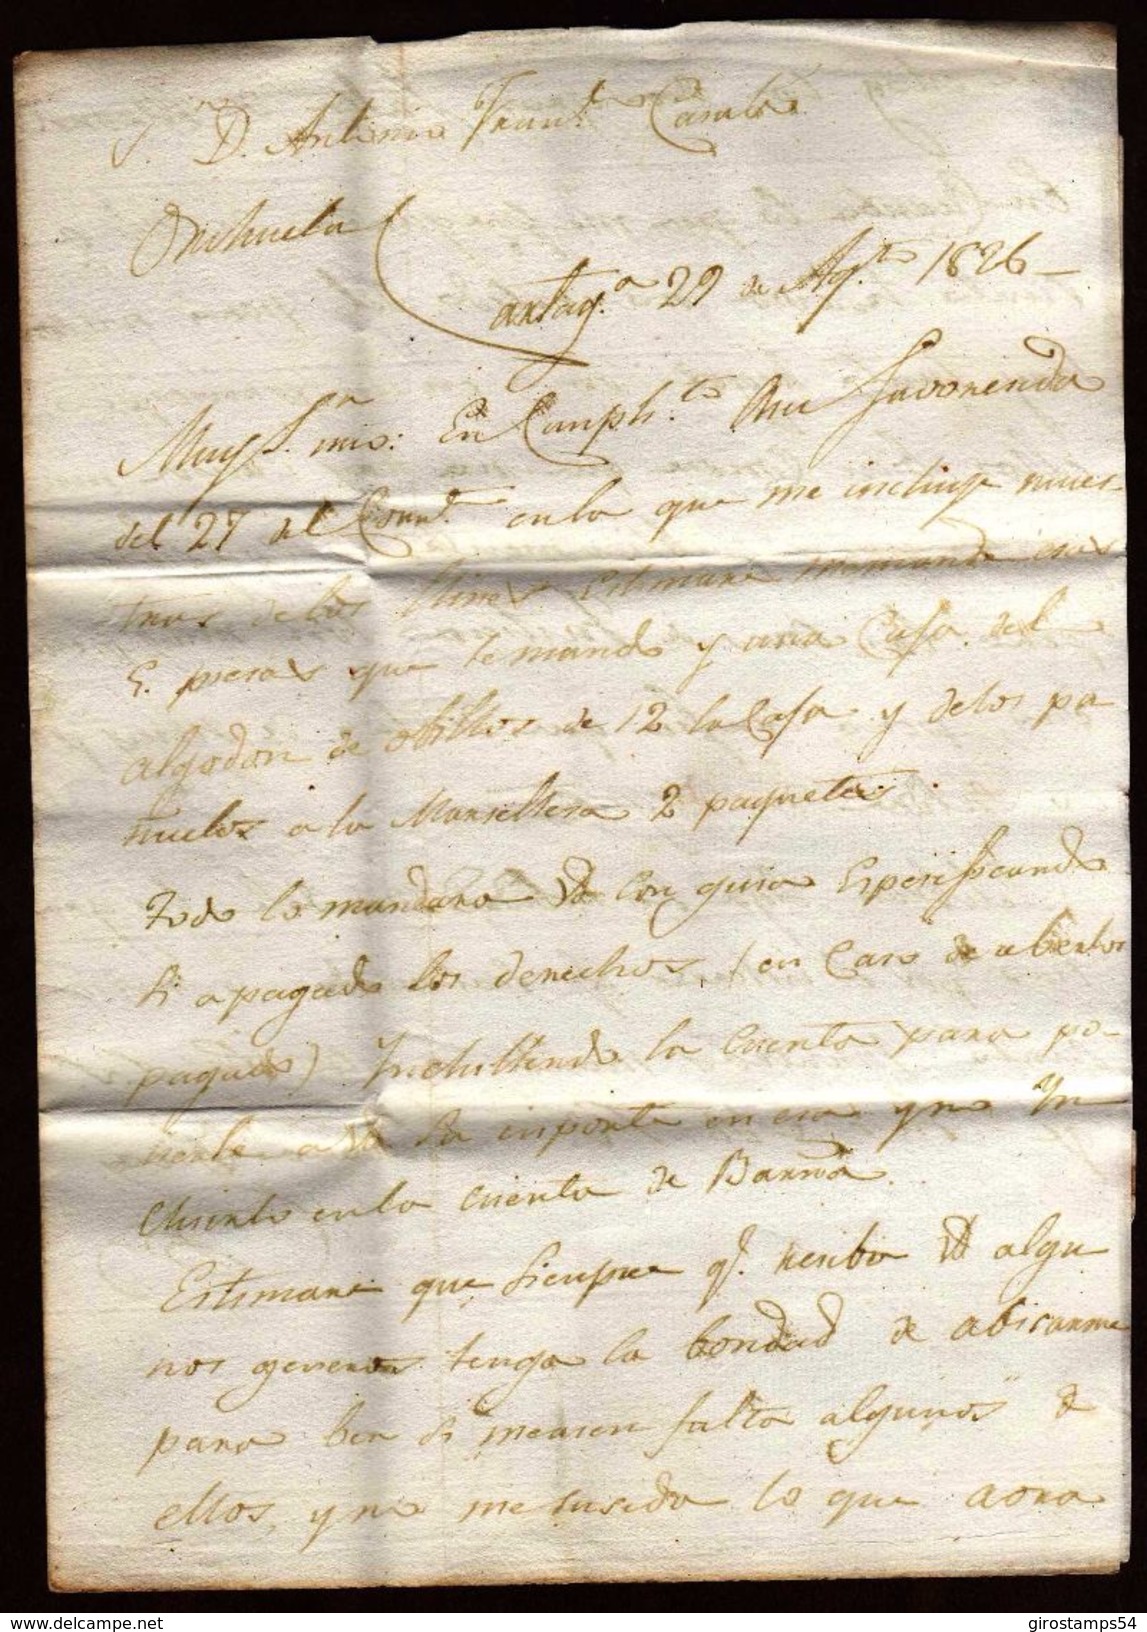 S.r D. Antonio Fran.d
Orihuela
Cartag.a 29 de Ag.to 1826
Muy S.r mio: En Cunph.to a su favorenida
del 27 del Corr.te en la que me incluye mues
tras de los Estimare me mande esas
5. piesas que le mando y una Casa del
algodon de obillos de 12 la Casa y de los pa
nuelos a la Marsellesa 2 paquetes.
todo lo mandara Vd con guia Espesificando
si a pagado los derechos, (en Caso de aberlos
pagado) Incluillendo la Cuenta para po
nerle a Vd su inporte en esa y no Yn
Cluirlo en la cuenta de Barna.
Estimare que Sienpre q.e resiba Vd algu
nos generos tenga la bondad de abisarme
para ber si me asen falta algunos de
ellos, y no me suseda lo que aora
girostamps54